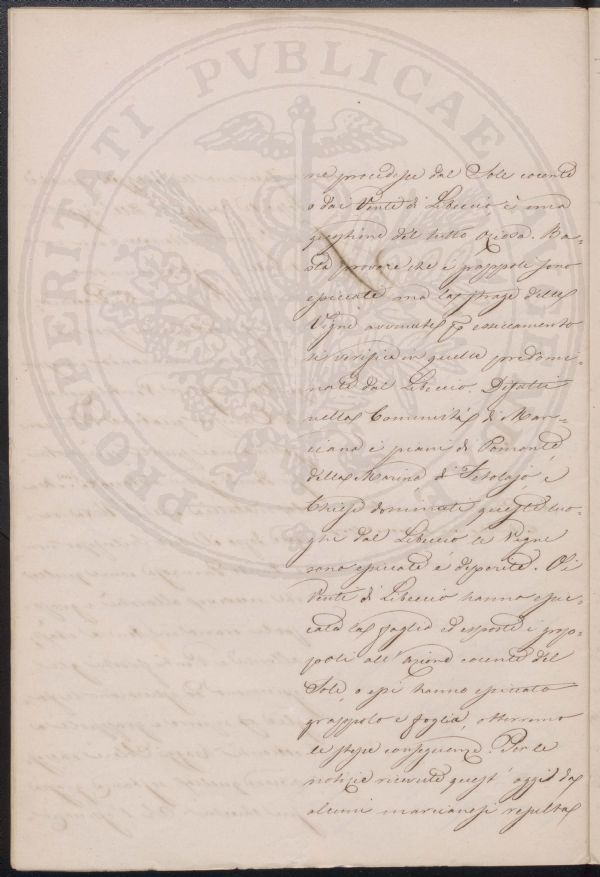 PROSPERITATI PVBLICAE
ne procedesse dal Sole cocente
o dai Venti di Libeccio, è una
questione del tutto oziosa. Ba-
sta provare che i grappoli sono
essiccati ma la strage delle
Vigne avvenuta
si verifica in quelle predomi-
nate dal Libeccio. Difatti
nella Comunità di Mar-
ciana i piani di Pomonte,
della Marina di Fetovaja, e
Chiesi dominati questi luo-
ghi dal Libeccio le Vigne
sono essicate e disperite. O i
Venti di Libeccio hanno essic-
cata la foglia ed esposti i grap-
poli all'azione cocente del
Sole, o essi hanno essiccato
grappolo e foglia, otterremo
le stesse conseguenze. Per le
notizie ricevute quest'oggi da
alcuni marcianesi resulta